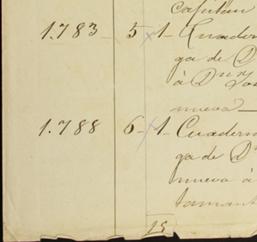 Capitan
1.783 - 5 x 1- Cuader
ga de D
à Dn
nueva
1.788 6 - x 1- Cuadern
ga de D
nueva à
tamant
25